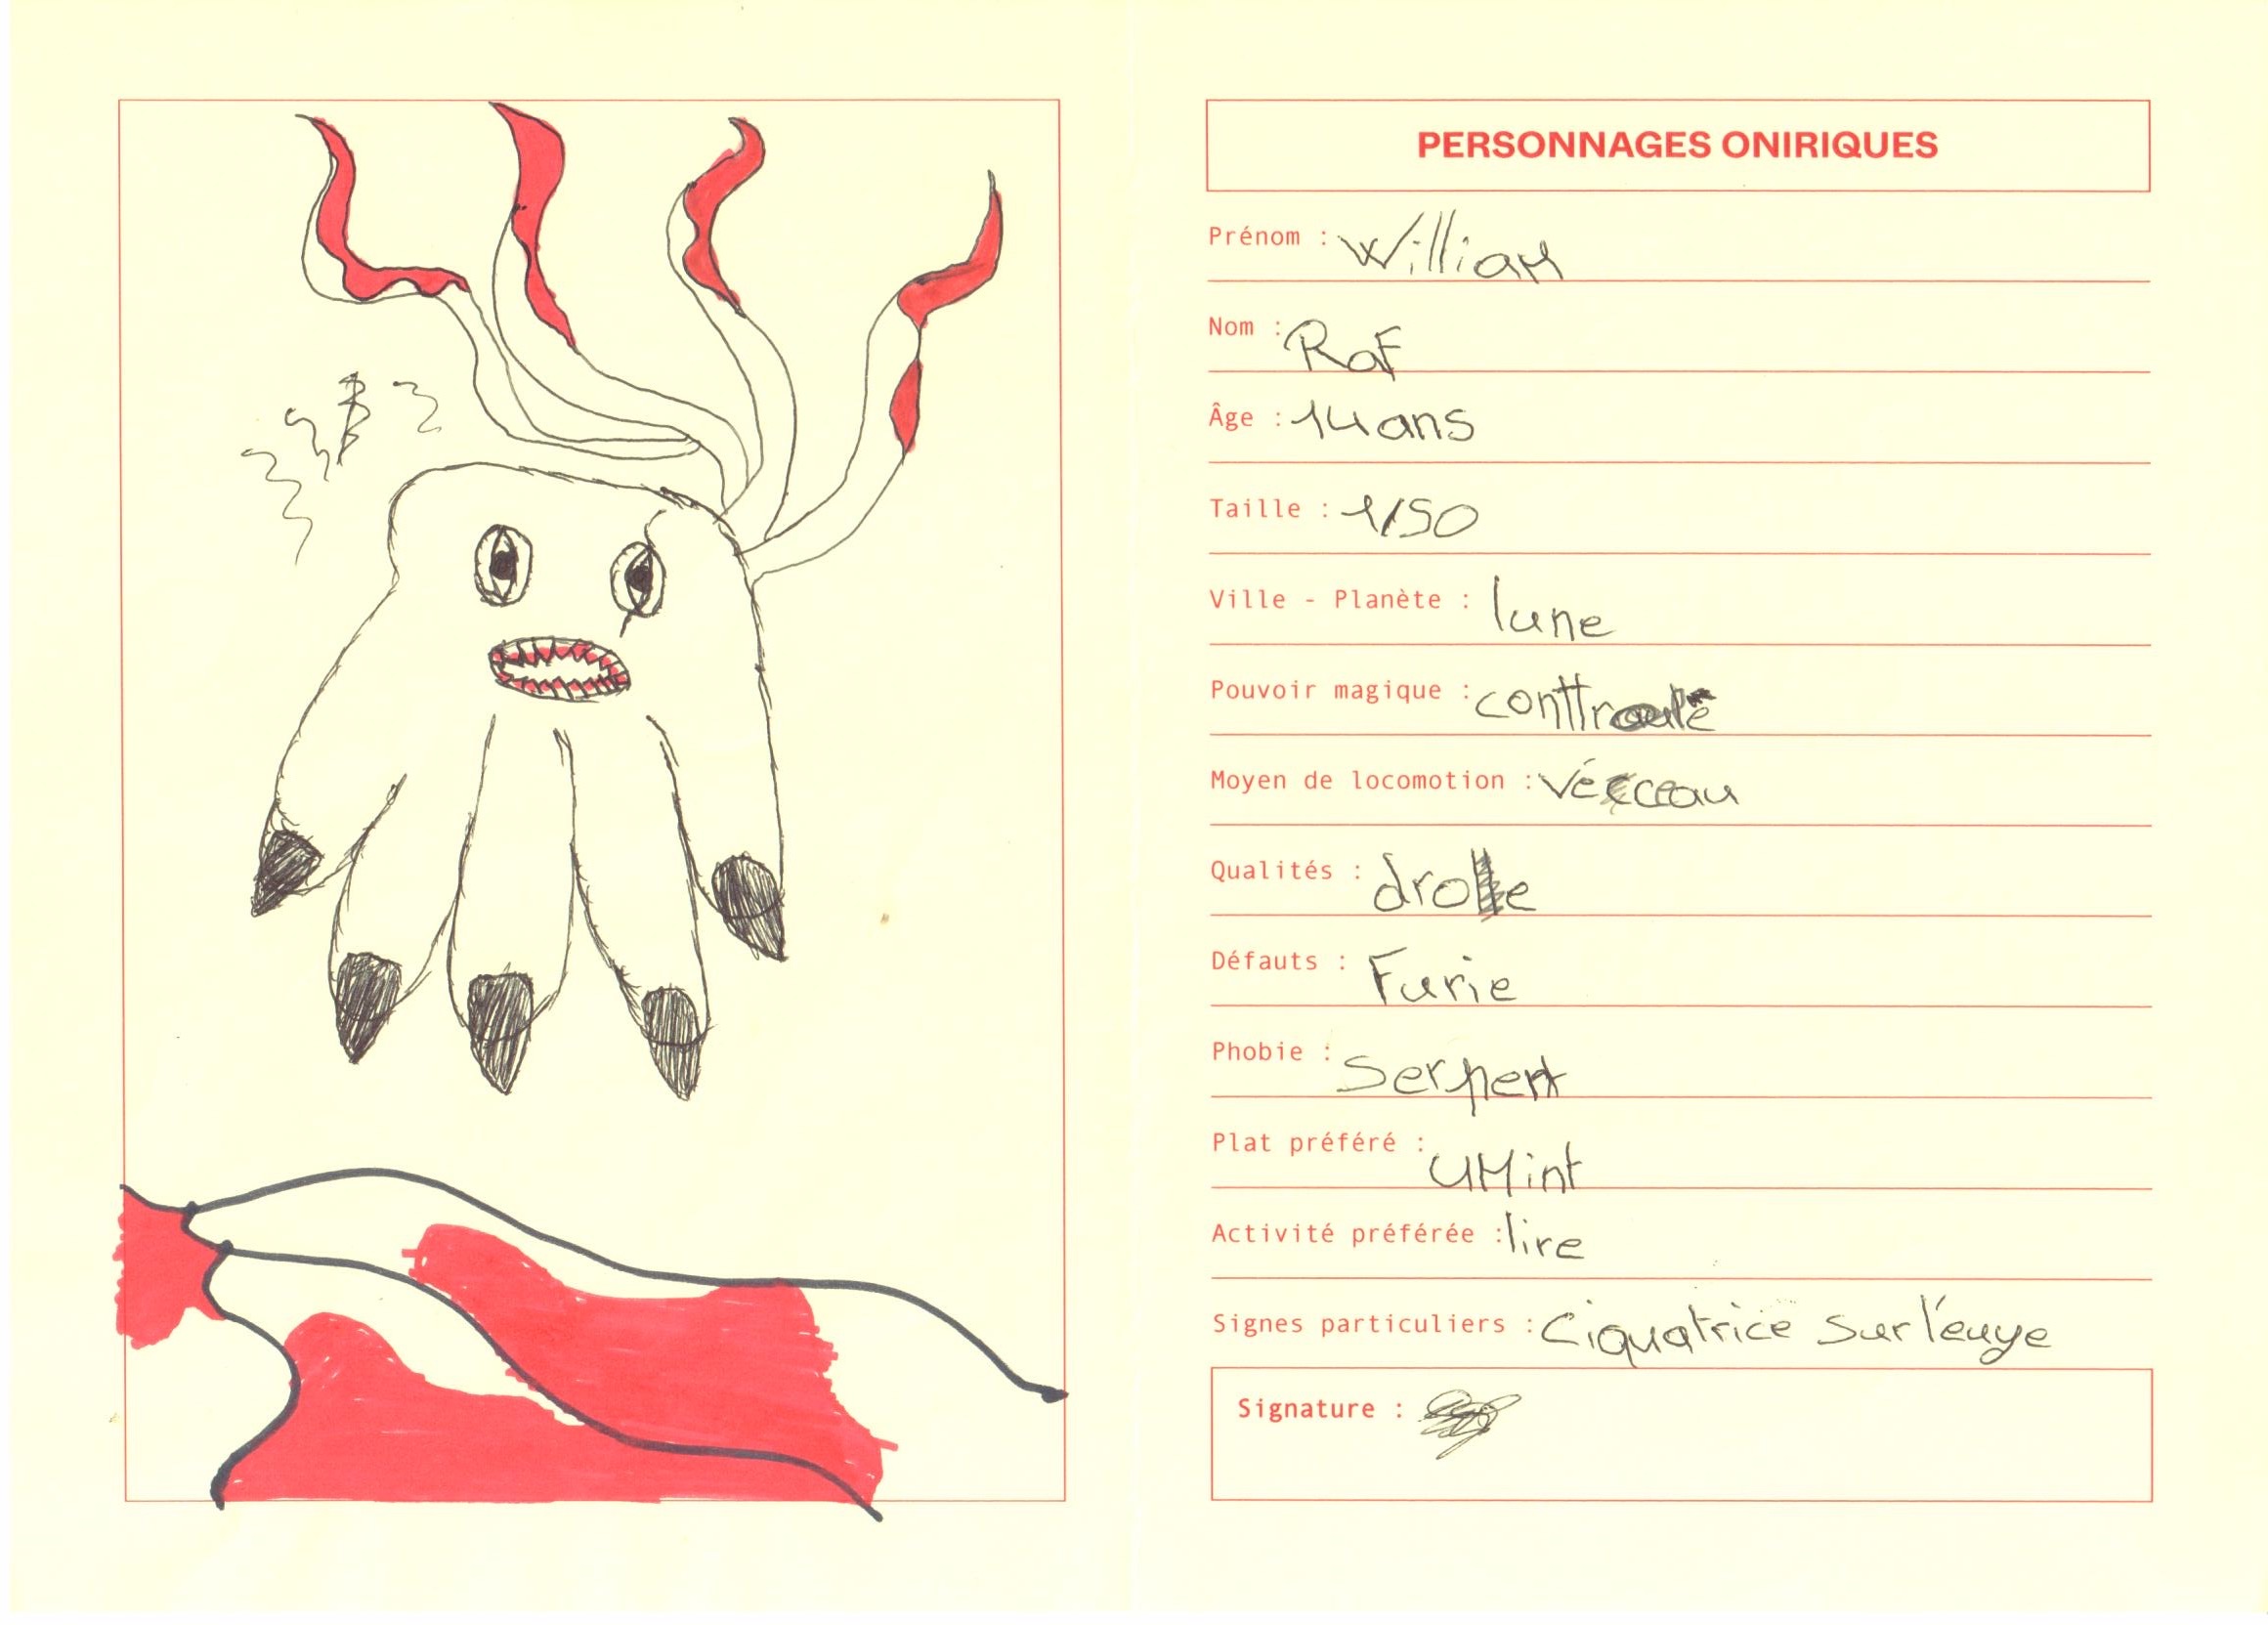 PERSONNAGES ONIRIQUES
Prénom : William
Nom : RaF
Âge : 14 ans
Taille : 1/50
Ville - Planète : lune
Pouvoir magique :
Moyen de locomotion :
Qualités : drole
Défauts : Furie
Phobie : Serpent
Plat préféré : UMint
Activité préférée : lire
Signes particuliers : Ciquatrice sur l'euye
Signature :